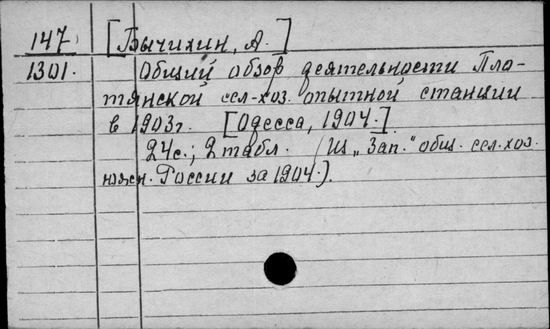 147 [Бычихин, А.]
1301. Общий обзор деятельности Пло-
тянской сел-хоз. опытной станции
в 1903г. [Одесса, 1904.]
24с.; 2 табл. (Из „Зап.“ общ. сел.хоз.
южн. России за 1904.).